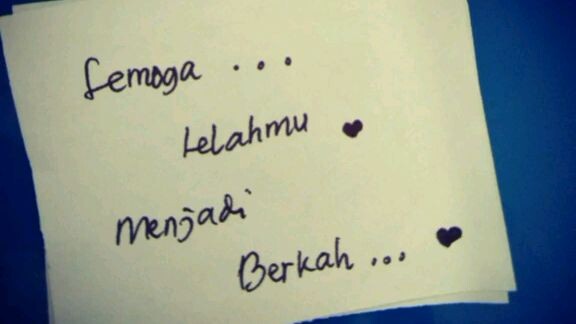 Semoga ...
Lelahmu ♥
Menjadi
Berkah ... ♥